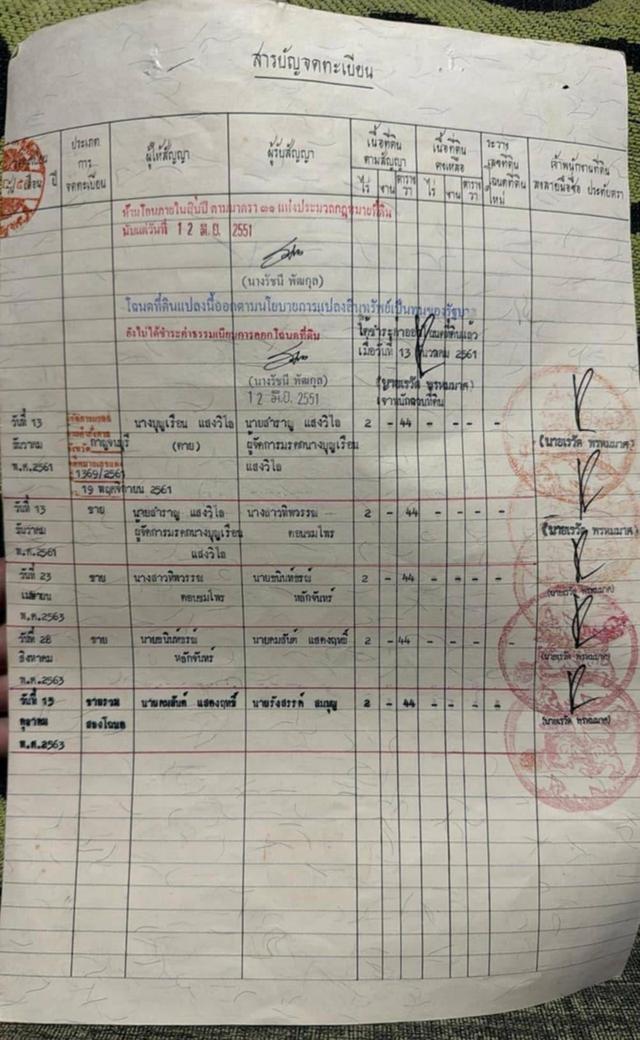 สารบัญจดทะเบียน
ประเภท การ จดทะเบียน
ผู้ให้สัญญา
ผู้รับสัญญา
เนื้อที่ดิน ตามสัญญา
เนื้อที่ดิน คงเหลือ
ระวาง เลขที่ดิน โฉนดที่ดิน ใหม่
เจ้าพนักงานที่ดิน ลงลายมือชื่อ ประทับตรา
ปี
ไร่ งาน ตารางวา ไร่ งาน ตารางวา
ห้ามโอนภายในสิบปี ตามมาตรา ๓๑ แห่งประมวลกฎหมายที่ดิน
นับแต่วันที่ 12 มิ.ย. 2551
(นางรัชนี พัฒกุล)
โฉนดที่ดินแปลงนี้ออกตามนโยบายการแปลงสินทรัพย์เป็นทุนของรัฐบา
ยังไม่ได้ชำระค่าธรรมเนียมการออกโฉนดที่ดิน
ได้ชำระค่าออกโฉนดที่ดินแล้ว
เมื่อวันที่ 13 ธันวาคม 2561
(นางรัชนี พัฒกุล)
12 มิ.ย. 2551
(นายเรวัด พรหมมาศ)
เจ้าพนักงานที่ดิน
วันที่ 13 นางบุญเรือน แสงวิไล นายสำราญ แสงวิไล 2 - 44 - - - -
ธันวาคม กาญจนบุรี (ตาย) ผู้จัดการมรดกนางบุญเรือน (นายเรวัด พรหมมาศ)
พ.ศ.2561 1369/2561 แสงวิไล
19 พฤศจิกายน 2561
วันที่ 13 ขาย นายสำราญ แสงวิไล นางสาวทิพวรรณ 2 - 44 - - - -
ธันวาคม ผู้จัดการมรดกนางบุญเรือน ดอนชมไพร (นายเรวัด พรหมมาศ)
พ.ศ.2561 แสงวิไล
วันที่ 23 ขาย นางสาวทิพวรรณ นายชนินท์ธรณ์ 2 - 44 - - - -
เมษายน ดอนชมไพร หลักจันทร์ (นายเรวัด พรหมมาศ)
พ.ศ.2563
วันที่ 28 ขาย นายชนินท์ธรณ์ นายคมสันต์ แสดงฤทธิ์ 2 - 44 - - - -
สิงหาคม หลักจันทร์ (นายเรวัด พรหมมาศ)
พ.ศ.2563
วันที่ 15 ขายรวม นายคมสันต์ แสดงฤทธิ์ นายรังสรรค์ สมบุญ 2 - 44 - - - -
ตุลาคม สองโฉนด (นายเรวัด พรหมมาศ)
พ.ศ.2563